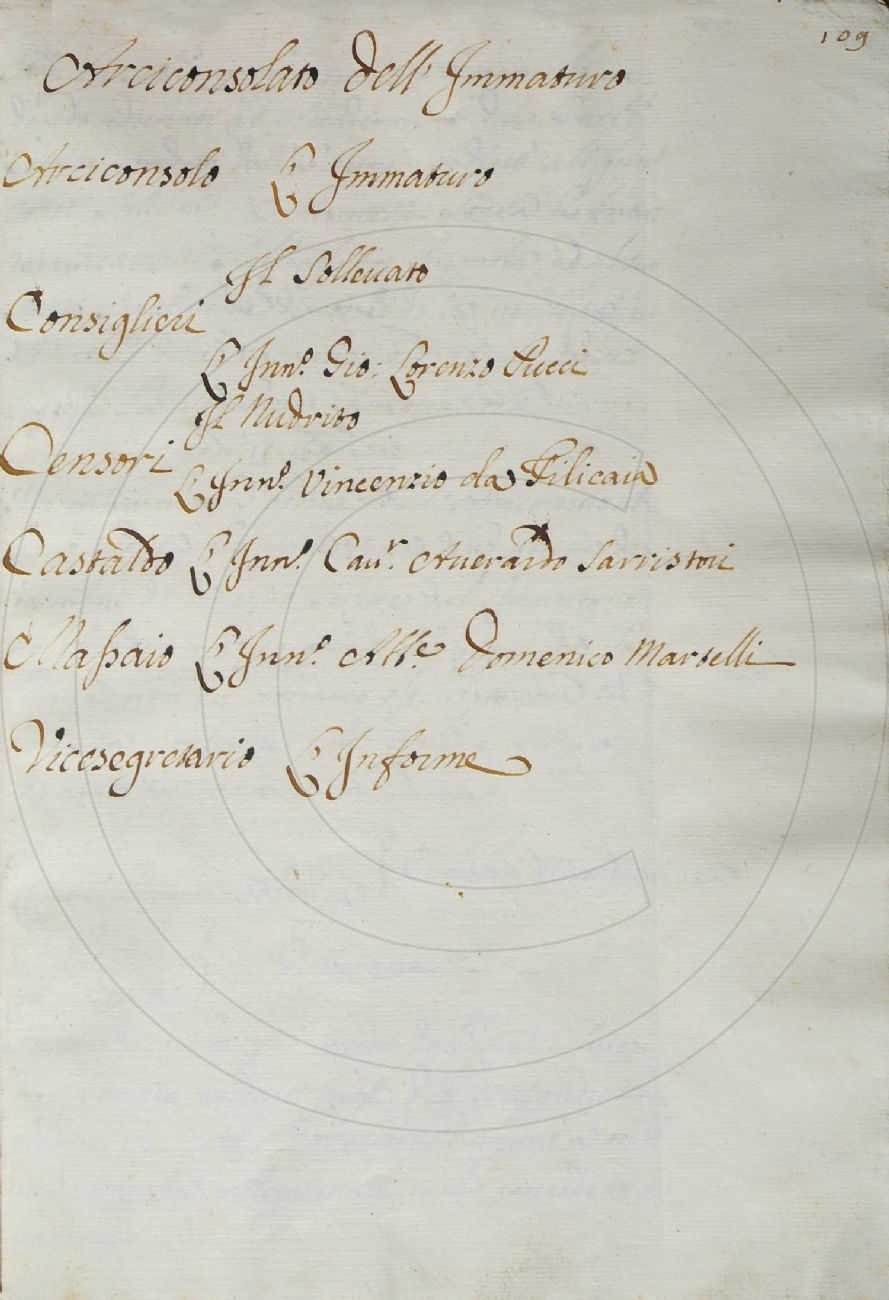 109
Arciconsolato dell' Immaturo
Arciconsolo L'Immaturo
Il Solleuato
Consiglieri
L'Inn.º Gio: Lorenzo Pucci
Il Nudrito
Censori
L'Inn.º Vincenzio da Filicaia
Castaldo L'Inn.º Cau.r Auerardo Sarristori
Massaio L'Inn.º Ab.e Domenico Martelli
Vicesegretario L'Informe